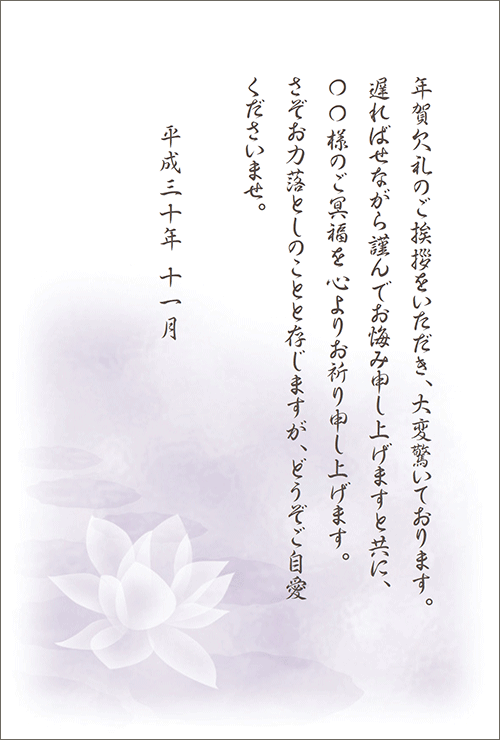 年賀欠礼のご挨拶をいただき、大変驚いております。
遅ればせながら謹んでお悔み申し上げますと共に、
〇〇様のご冥福を心よりお祈り申し上げます。
さぞお力落としのことと存じますが、どうぞご自愛
くださいませ。
平成三十年 十一月